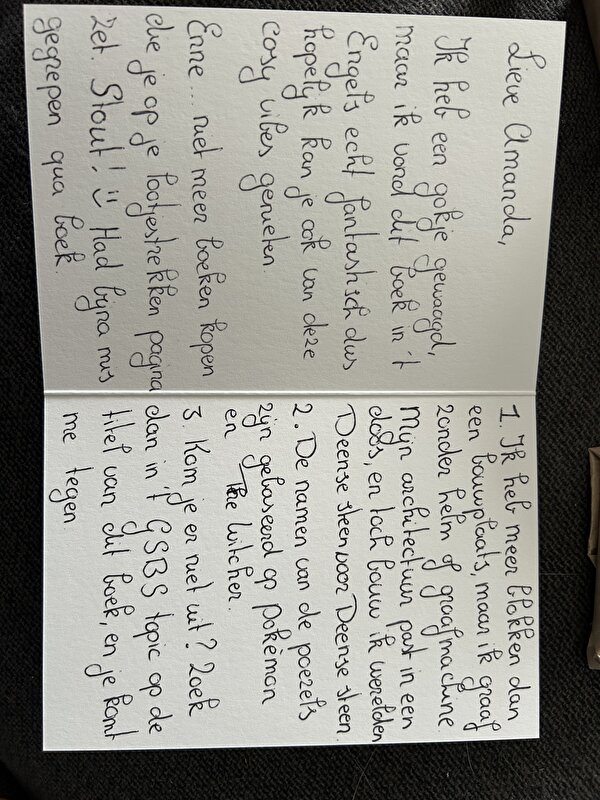 Lieve Amanda,
Ik heb een gokje gewaagd,
maar ik vond dit boek in 't
Engels echt fantastisch dus
hopelijk kan je ook van deze
cosy vibes genieten.
Enne... niet meer boeken kopen
die je op je lootjestrekken pagina
zet. Stout! :) Had bijna mis
gegrepen qua boek.
1. Ik heb meer blokken dan
een bouwplaats, maar ik graaf
zonder helm of graafmachine.
Mijn architectuur past in een
doos, en toch bouw ik werelden
Deense steen voor Deense steen.
2. De namen van de poezels
zijn gebaseerd op pokémon
en The Witcher.
3. Kom je er niet uit? Zoek
dan in 't GSBS topic op de
titel van dit boek, en je komt
me tegen